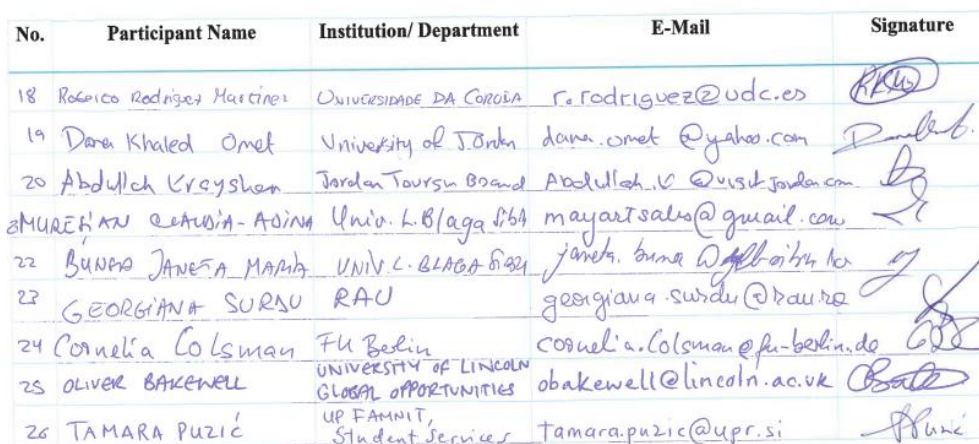 No. Participant Name Institution/ Department E-Mail Signature
18 Rodriguez Martinez UNIVERSIDADE DA CORUÑA r.rodriguez@udc.es
19 Dana Khaled Omet University of Jordan dana.omet@yahoo.com
20 Abdullah Jordan Tourism Board Abdullah.K@visitjordan.com
MUREȘAN CLAUDIA-ADINA Univ. L.Blaga Sibiu mayartsales@gmail.com
22 MARIA UNIV. L. BLAGA SIBIU
23 GEORGIANA SURDU RAU georgiana.surdu@rau.ro
24 Cornelia Colsman FU Berlin cornelia.colsman@fu-berlin.de
25 OLIVER BAKEWELL UNIVERSITY OF LINCOLN GLOBAL OPPORTUNITIES obakewell@lincoln.ac.uk
26 TAMARA PUZIĆ UP FAMNIT, Student Services tamara.puzic@upr.si